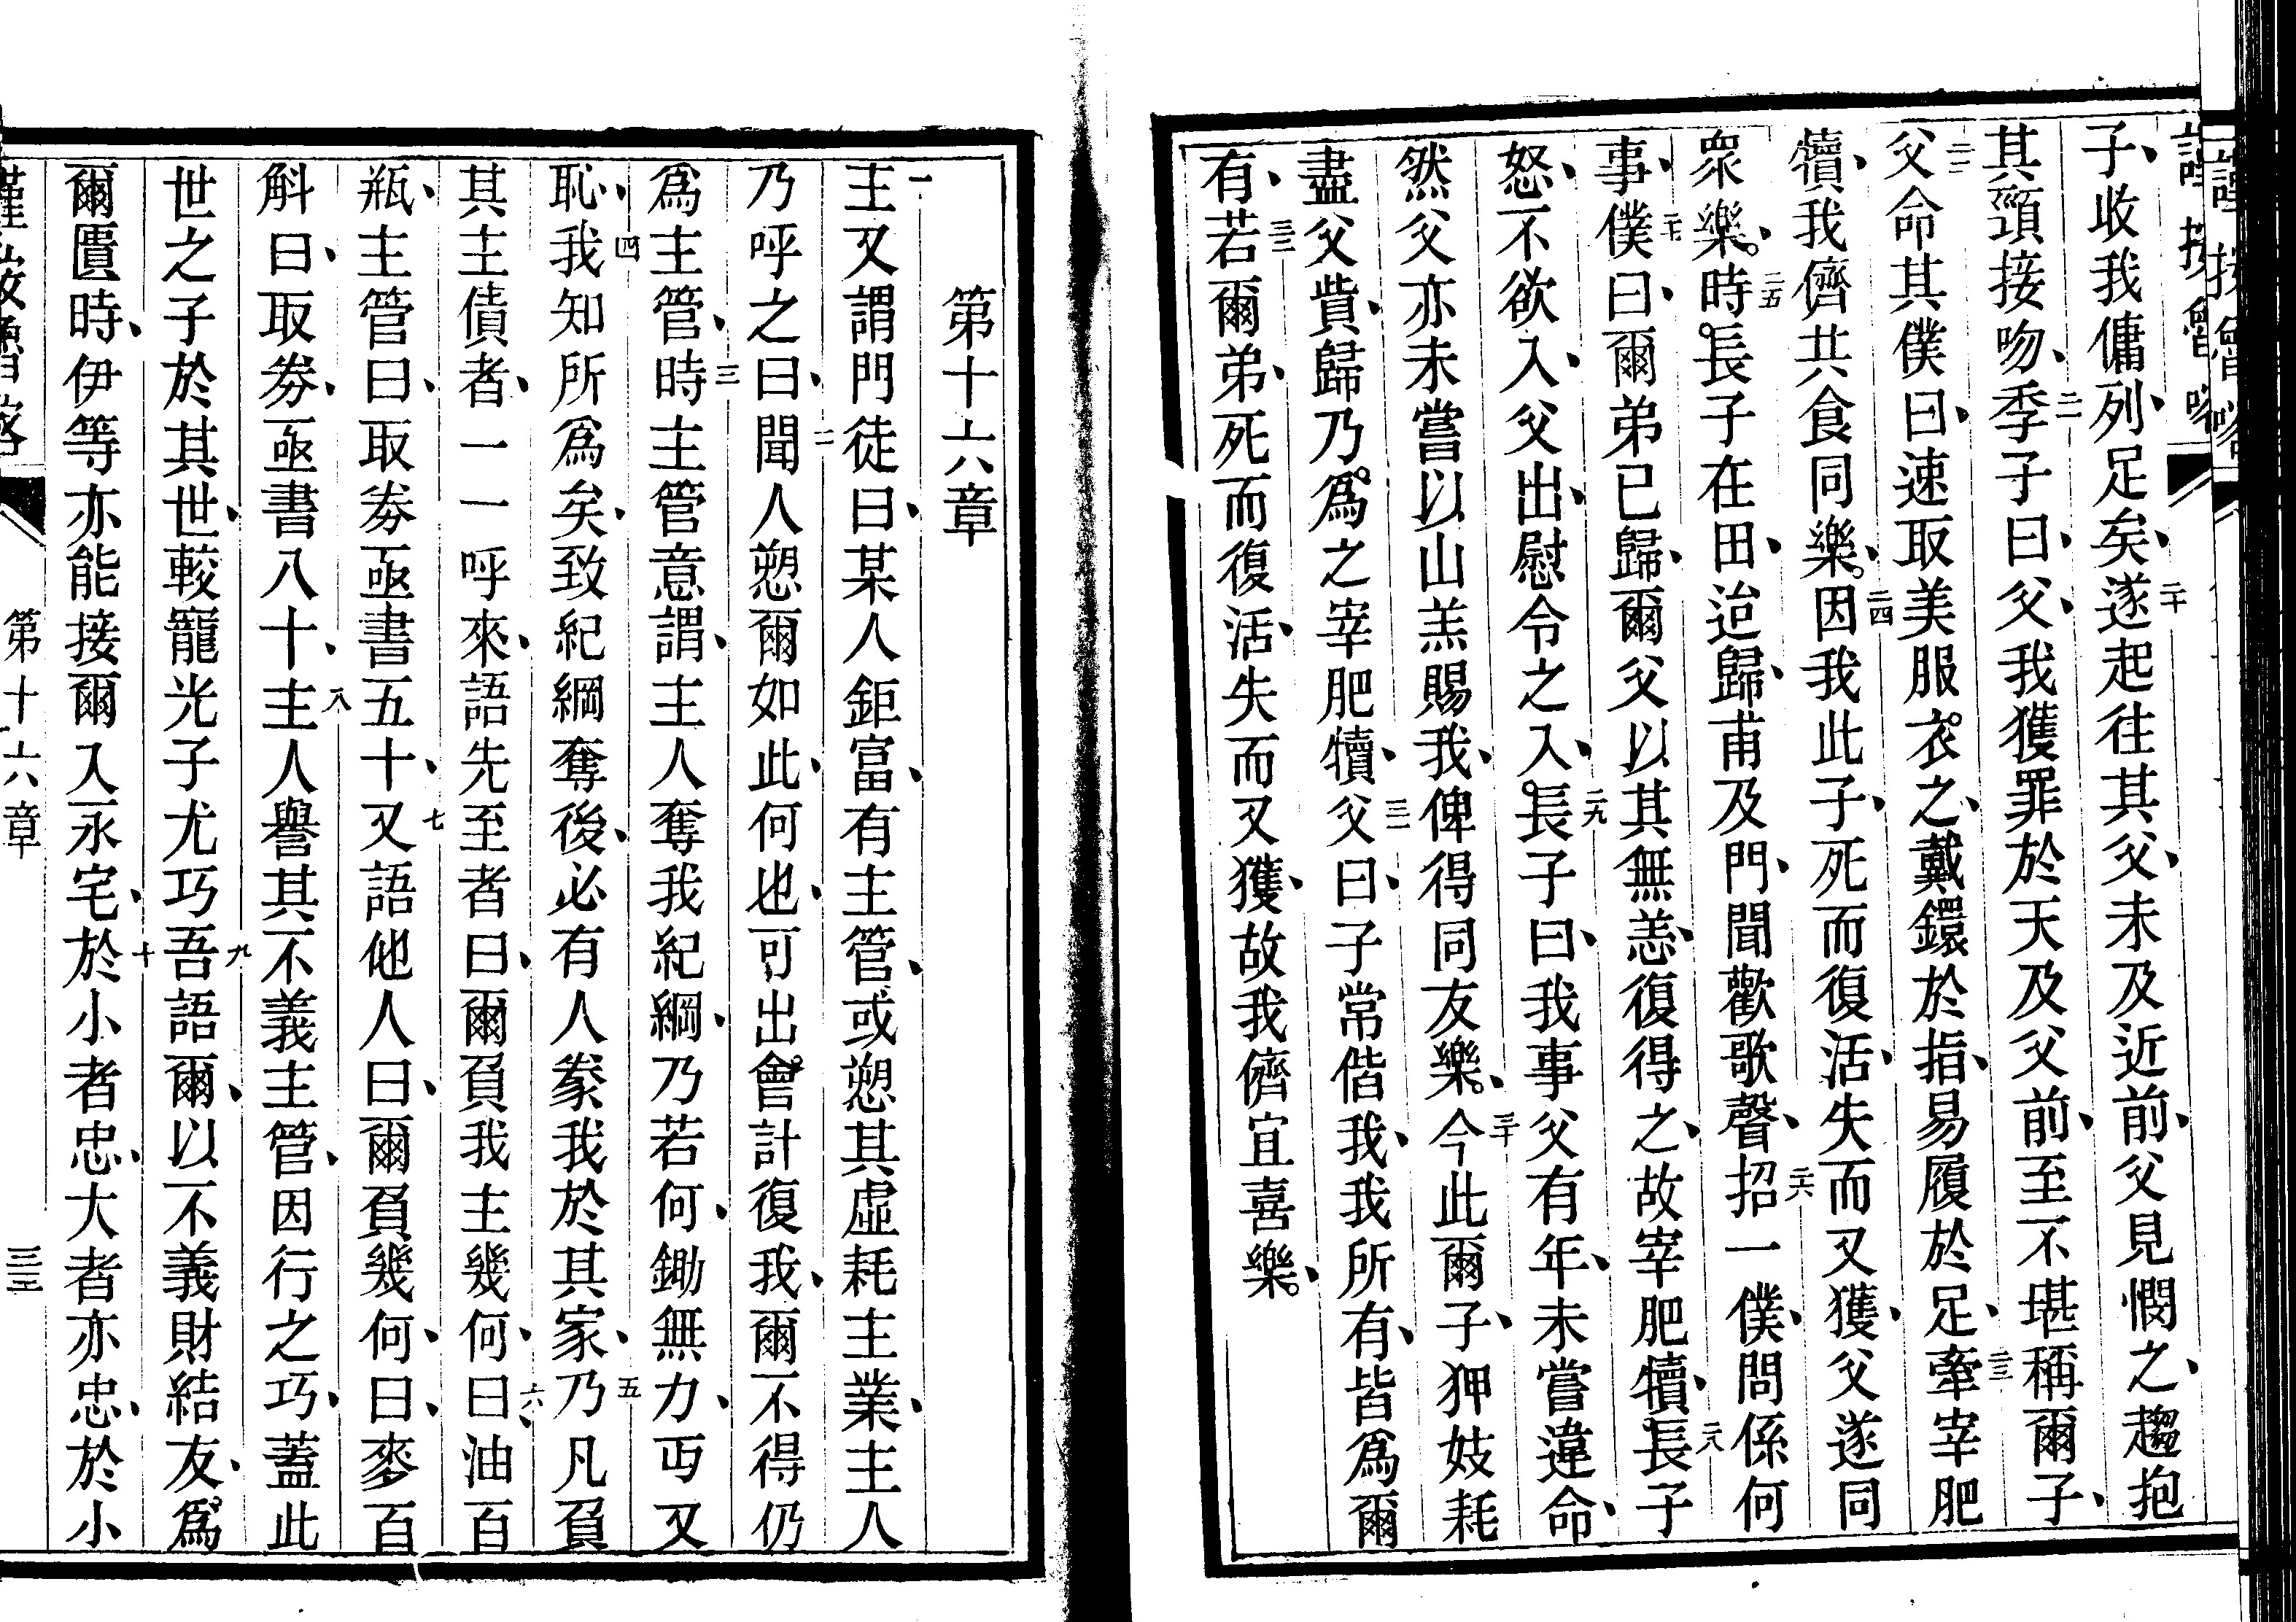 子、收我傭列、足矣、二十遂起往其父、未及近前、父見憫之、趨抱
其頸接吻、二一季子曰、父、我獲罪於天及父前、至不堪稱爾子、
二二父命其僕曰、速取美服衣之、戴鐶於指、易履於足、二三牽宰肥
犢、我儕共食同樂、二四因我此子、死而復活、失而又獲、父遂同
衆樂、二五時長子在田、迨歸、甫及門、聞歡歌聲、二六招一僕、問係何
事、二七僕曰、爾弟已歸、爾父以其無恙、復得之、故宰肥犢、二八長子
怒、不欲入、父出、慰令之入、二九長子曰、我事父有年、未嘗違命、
然父亦未嘗以山羔賜我、俾得同友樂、三十今此爾子、狎妓耗
盡父貲、歸乃爲之宰肥犢、三一父曰、子常偕我、我所有、皆爲爾
有、三二若爾弟、死而復活、失而又獲、故我儕宜喜樂、
第十六章
一主又謂門徒曰、某人鉅富、有主管、或愬其虛耗主業、主人
乃呼之曰、二聞人愬爾如此、何也、可出會計復我、爾不得仍
爲主管、三時主管意謂、主人奪我紀綱、乃若何、鋤無力、丐又
恥、四我知所爲矣、致紀綱奪後、必有人豢我於其家、五乃凡負
其主債者、一一呼來、語先至者曰、爾負我主幾何、六曰、油百
瓶、主管曰、取券亟書五十、七又語他人曰、爾負幾何、曰、麥百
斛、曰、取券、亟書八十、八主人譽其不義主管、因行之巧、蓋此
世之子於其世、較寵光子尤巧、九吾語爾、以不義財結友、爲
爾匱時、伊等亦能接爾入永宅、十於小者忠、大者亦忠、於小
第十六章